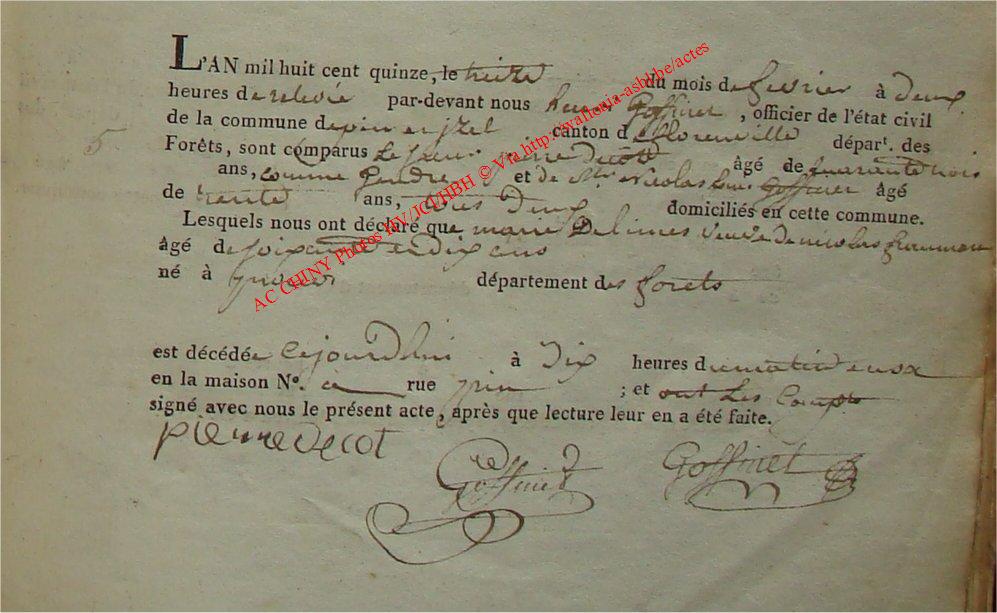 L'AN mil huit cent quinze, le treize du mois de fevrier à deux
heures de relevée par-devant nous henri Goffinet, officier de l'état civil
5 de la commune de pin et izel canton de florenville départ. des
Forêts, sont comparus Le sieur pierre decot âgé de quarante trois
ans, comme Gendre et de Mr nicolas Goffinet âgé
de trente ans, domiciliés en cette commune.
Lesquels nous ont déclaré que marie Delimes veuve de nicolas
âgé de soixante et dix ans
né à département des forets
est décédée cejourdhui à Dix heures du matin
en la maison N°. a rue pin ; et ont Les Comp
signé avec nous le présent acte, après que lecture leur en a été faite.
pierre decot
Goffinet Goffinet
AC CHINY Photos HV/JCl/HBH © Via http://wallonia-asbl.be/actes